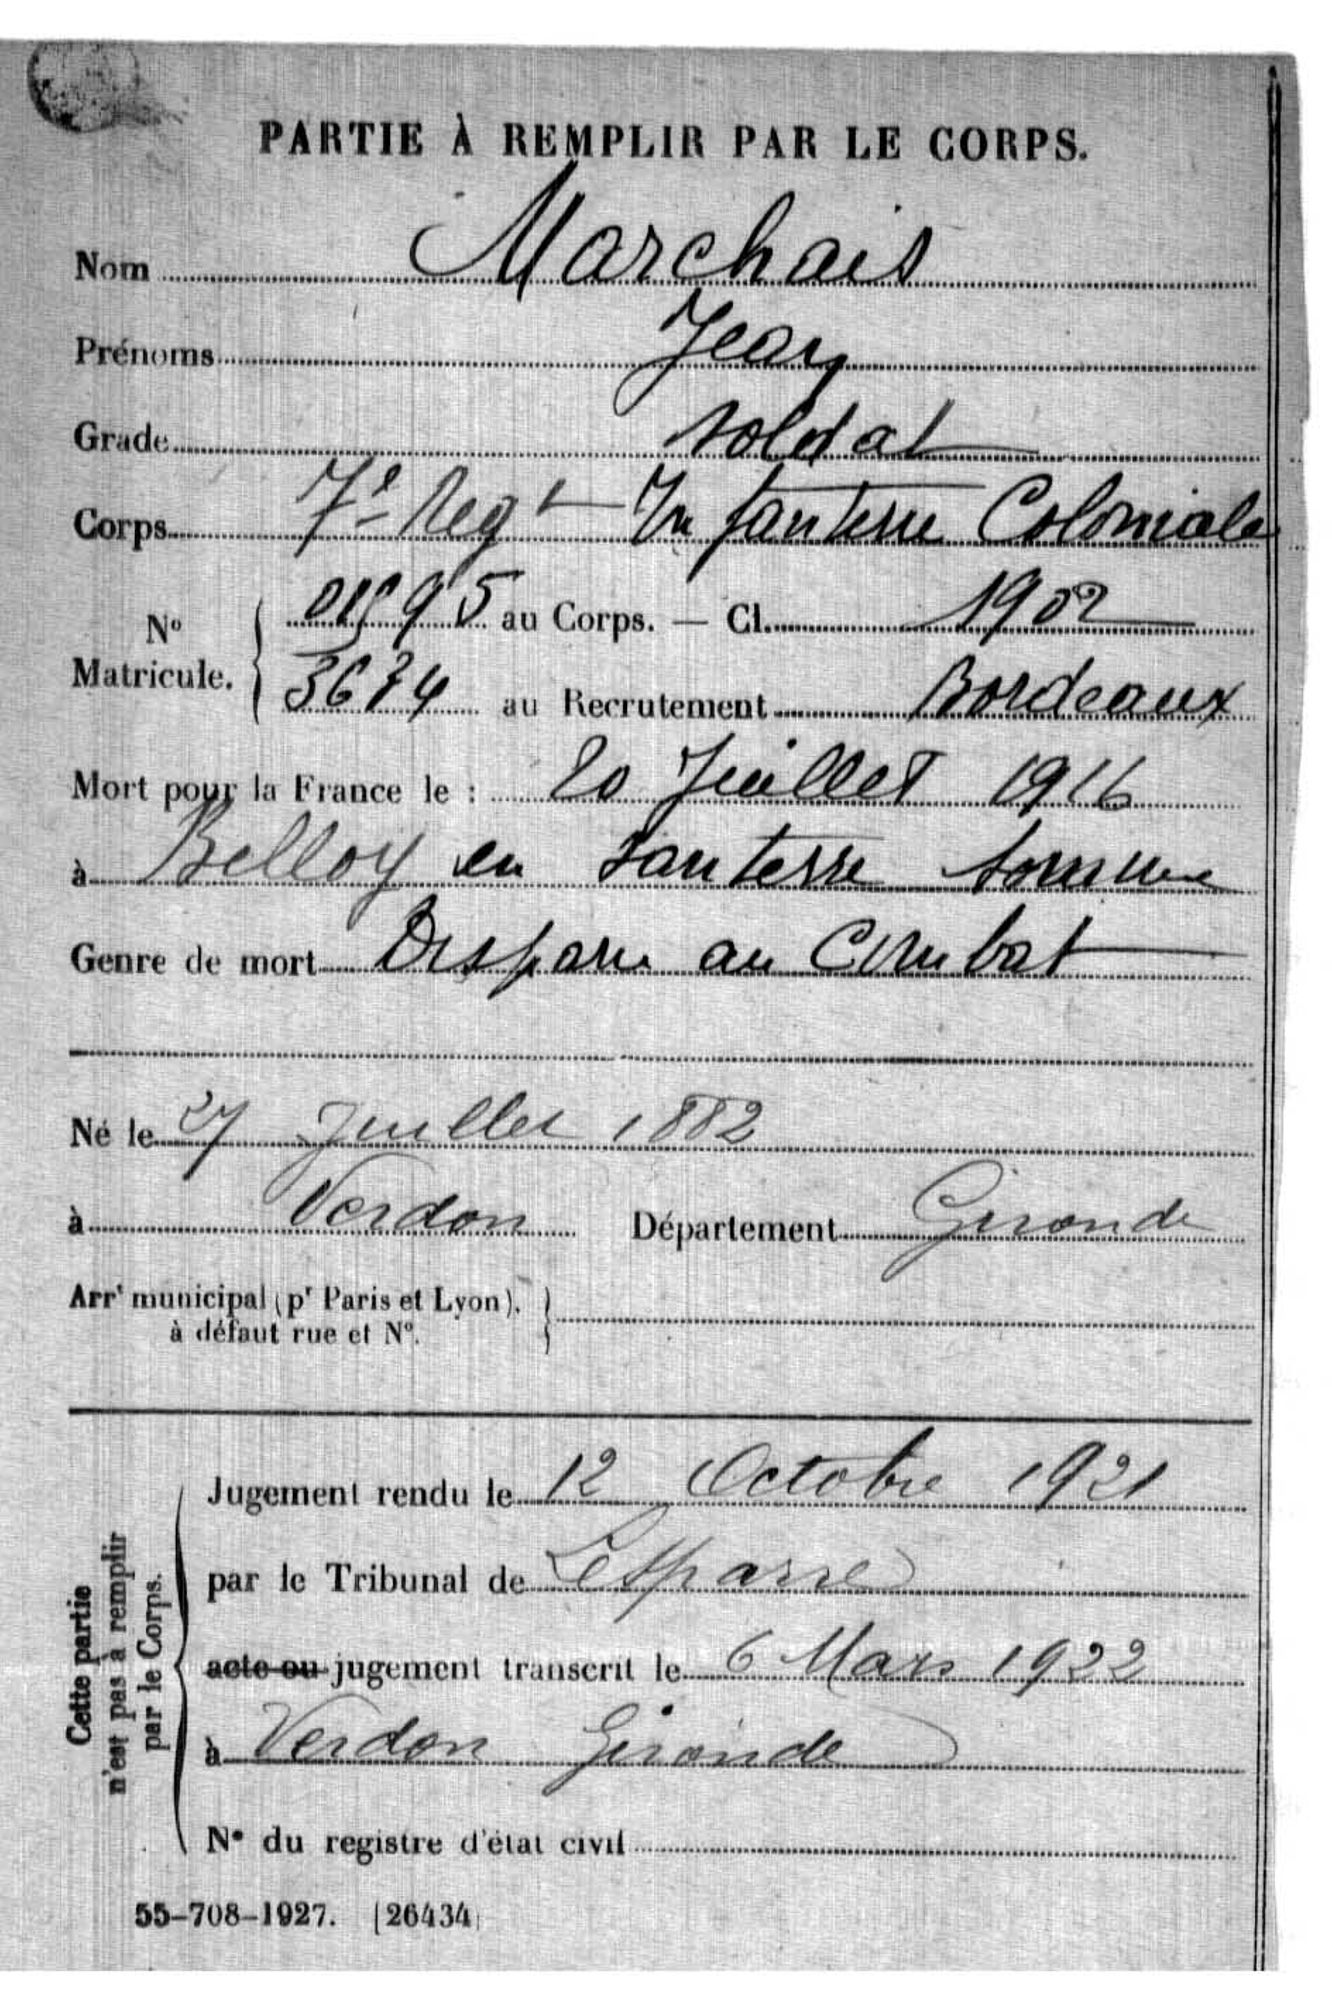 PARTIE À REMPLIR PAR LE CORPS.
Nom Marchais
Prénoms Jean
Grade soldat
Corps 7e Regt Infanterie Coloniale
No Matricule. au Corps. — Cl. 1902
3674 au Recrutement Bordeaux
Mort pour la France le : 20 Juillet 1916
à Belloy en Santerre Somme
Genre de mort Disparu au Combat
Né le 27 Juillet 1882
à Verdon Département Gironde
Arrt municipal (pr Paris et Lyon), à défaut rue et No.
Cette partie n'est pas à remplir par le Corps.
Jugement rendu le 12 Octobre 1921
par le Tribunal de Lesparre
acte ou jugement transcrit le 6 Mars 1922
à Verdon Gironde
No du registre d'état civil
55-708-1927. [26434]